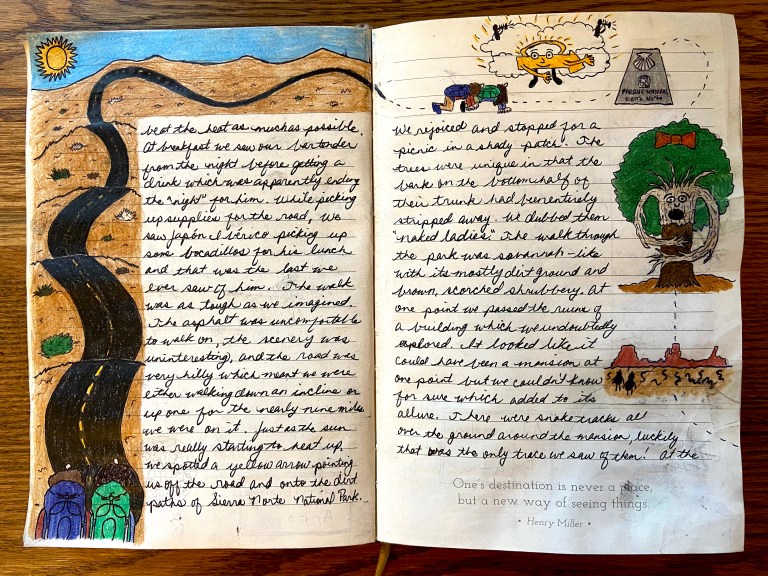 beat the heat as much as possible.
At breakfast we saw our bartender
from the night before getting a
drink which was apparently ending
the "night" for him. While picking
up supplies for the road, we
saw Jápon Ibérico picking up
some bocadillos for his lunch
and that was the last we
ever saw of him. The walk
was as tough as we imagined.
The asphalt was uncomfortable
to walk on, the scenery was
uninteresting, and the road was
very hilly which meant we were
either walking down an incline or
up one for the nearly nine miles
we were on it. Just as the sun
was really starting to heat up,
we spotted a yellow arrow pointing
us off the road and onto the dirt
paths of Sierra Norte National Park.
PARQUE NATURAL
Sierra Norte
We rejoiced and stopped for a
picnic in a shady patch. The
trees were unique in that the
bark on the bottom half of
their trunk had been entirely
stripped away. We dubbed them
"naked ladies." The walk through
the park was savannah-like
with its mostly dirt ground and
brown, scorched shrubbery. At
one point we passed the ruins of
a building which we undoubtedly
explored. It looked like it
could have been a mansion at
one point but we couldn't know
for sure which added to its
allure. There were snake tracks all
over the ground around the mansion, luckily
that was the only trace we saw of them! At the
One's destination is never a place,
but a new way of seeing things.
• Henry Miller •